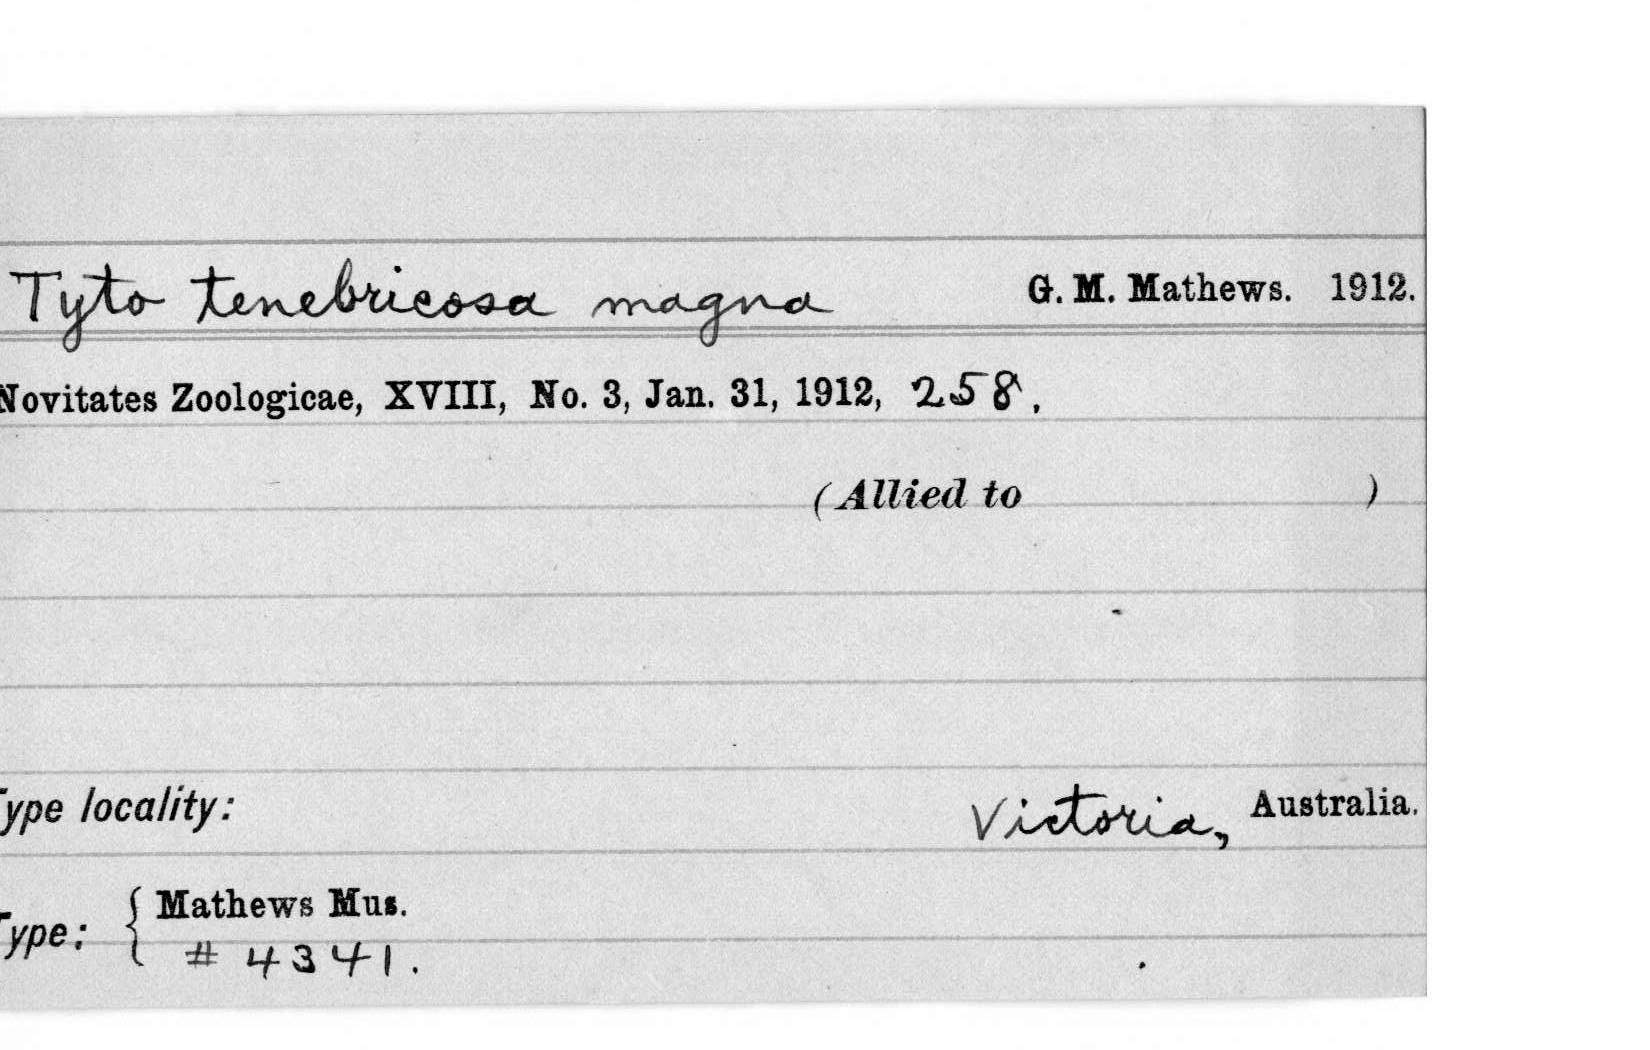 Tyto tenebricosa magna G. M. Mathews. 1912.
Novitates Zoologicae, XVIII, No. 3, Jan. 31, 1912, 258.
(Allied to )
Type locality: Victoria, Australia.
Type: { Mathews Mus.
# 4341.